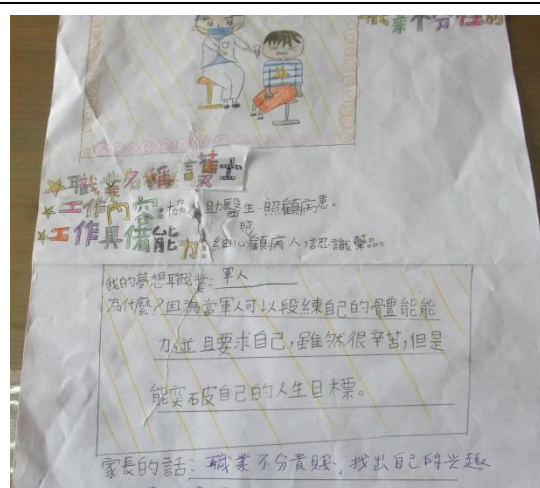 職業不分性別
職業名稱 護士
工作內容:協助醫生.照顧病患。
工作具備能力:細心照顧病人,認識藥品。
我的夢想職業:軍人
為什麼?因為當軍人可以段練自己的體能能
力並且要求自己,雖然很辛苦,但是
能突破自己的人生目標。
家長的話:職業不分貴賤,找出自己的興趣